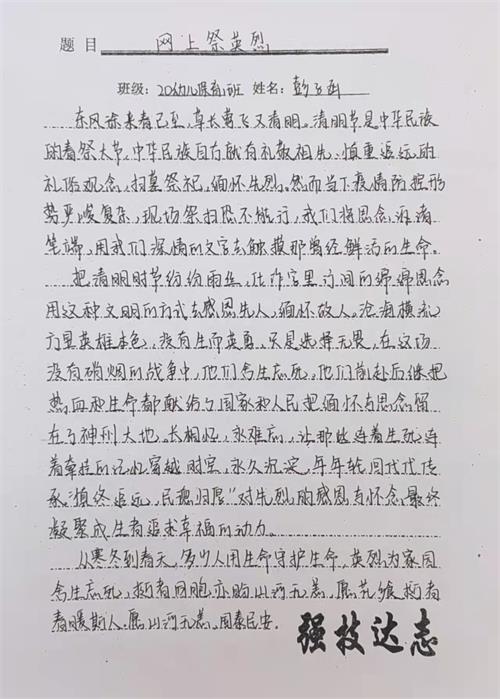 题目 网上祭英烈
班级：20幼儿保育1班 姓名：彭
东风徐来春已至，草长莺飞又清明。清明节是中华民族
的春祭大节，中华民族自古就有礼敬祖先、慎重追远的
礼俗观念，扫墓祭祀，缅怀先烈。然而当下疫情防控形
势严峻复杂，现场祭扫恐不能行，我们将思念诉诸
笔端，用我们深情的文字去触摸那曾经鲜活的生命。
把清明时节纷纷雨丝，化作字里行间的绵绵思念
用这种文明的方式去感恩先人，缅怀故人。沧海横流
方显英雄本色，没有生而英勇，只是选择无畏，在这场
没有硝烟的战争中，他们舍生忘死。他们前赴后继把
热血和生命都献给了国家和人民把缅怀与思念留
在了神州大地。长相忆，永难忘，让那些连着生死连
着牵挂的记忆穿越时空，永久沉淀，年年轮回代代传
承。"慎终追远，民德归厚"对先烈的感恩与怀念，最终
凝聚成生者追求幸福的动力。
从寒冬到春天，多少人用生命守护生命，英烈为家国
舍生忘死，逝者同胞亦盼山河无恙，愿花飨逝者
春暖斯人。愿山河无恙，国泰民安。
强技达志